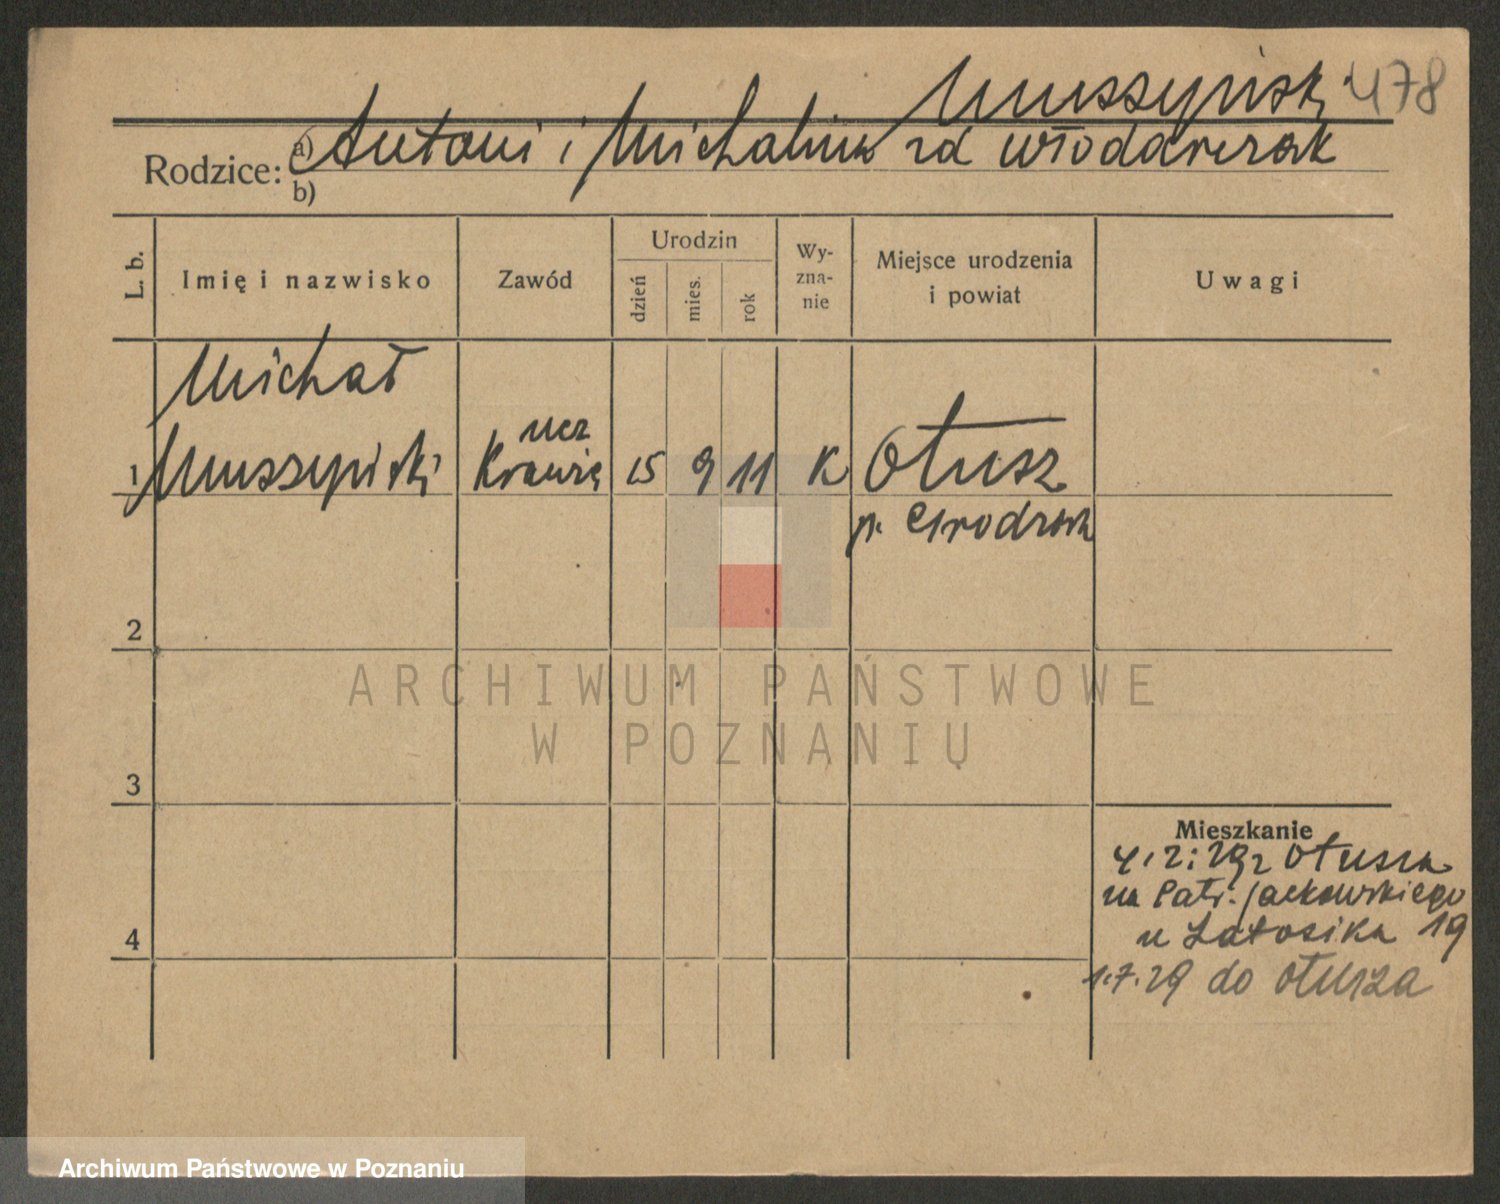 Muszyński 478
Rodzice: a) Antoni i Michalina zd Włodarczak
b)
L. b.
Imię i nazwisko
Zawód
Urodzin
dzień
mies.
rok
Wy-
zna-
nie
Miejsce urodzenia
i powiat
Uwagi
Michał
ucz
1 Muszyński Krawie 15 9 11 K Otusz
p. Grodzisk
2
ARCHIWUM PAŃSTWOWE
W POZNANIU
3
Mieszkanie
4.2.29 z Otusza
na Patr. Jackowskiego
u Latosika 19
4
1.7.29 do Otusza
Archiwum Państwowe w Poznaniu